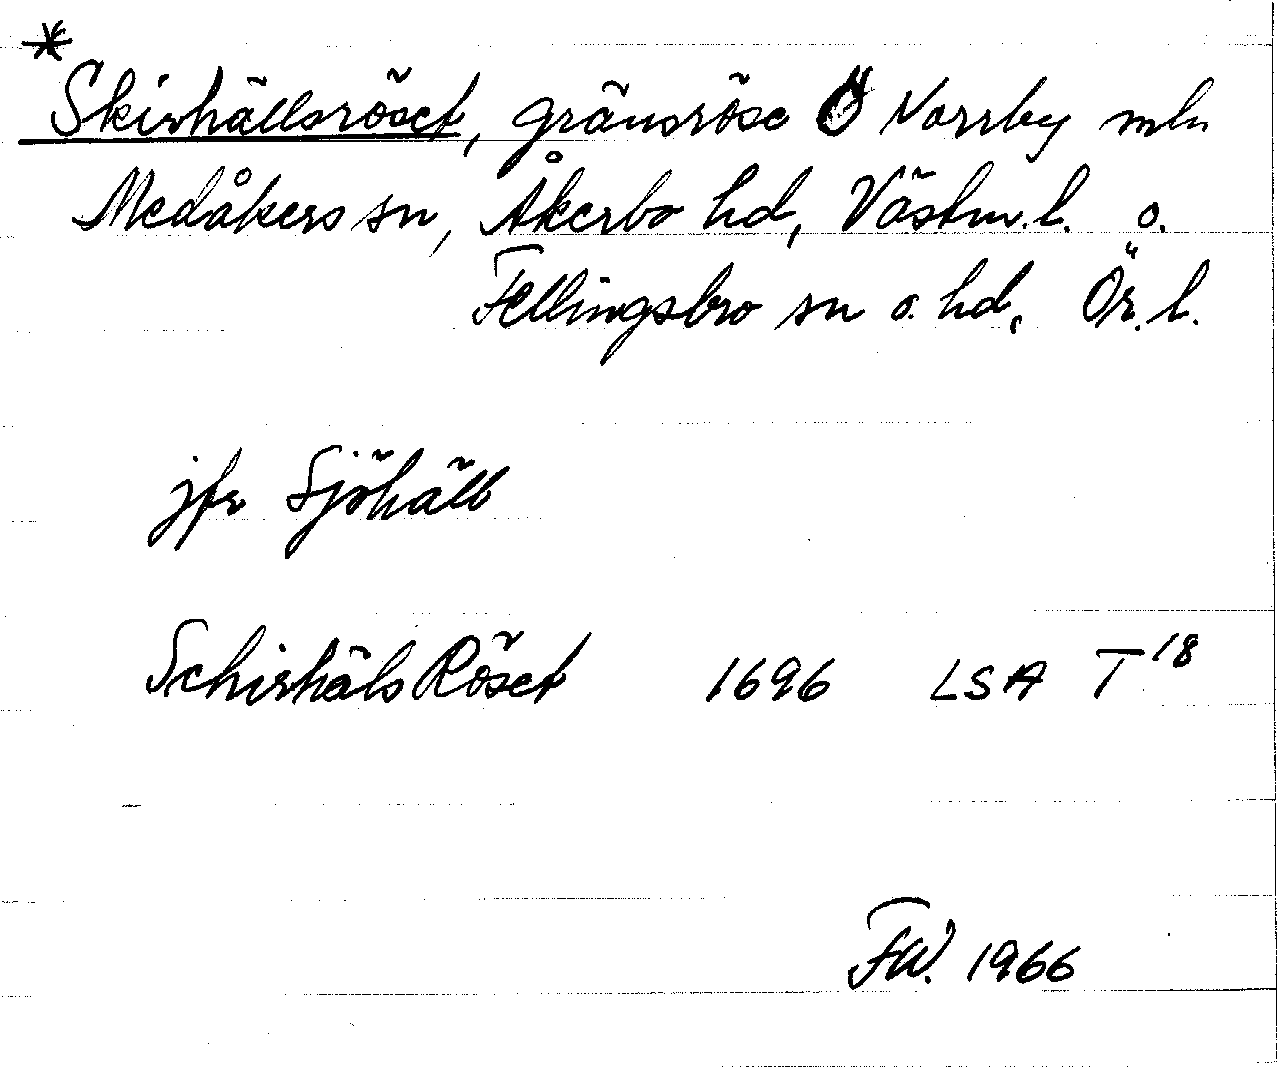 * Skirhällsröset, gränsröse Ö Norrby mln
Medåkers sn, Åkerbo hd, Västm. l. o.
Fellingsbro sn o. hd, Ör. l.
jfr Sjöhäll
Schirhäls Röset 1696 LSA T 18
FW. 1966